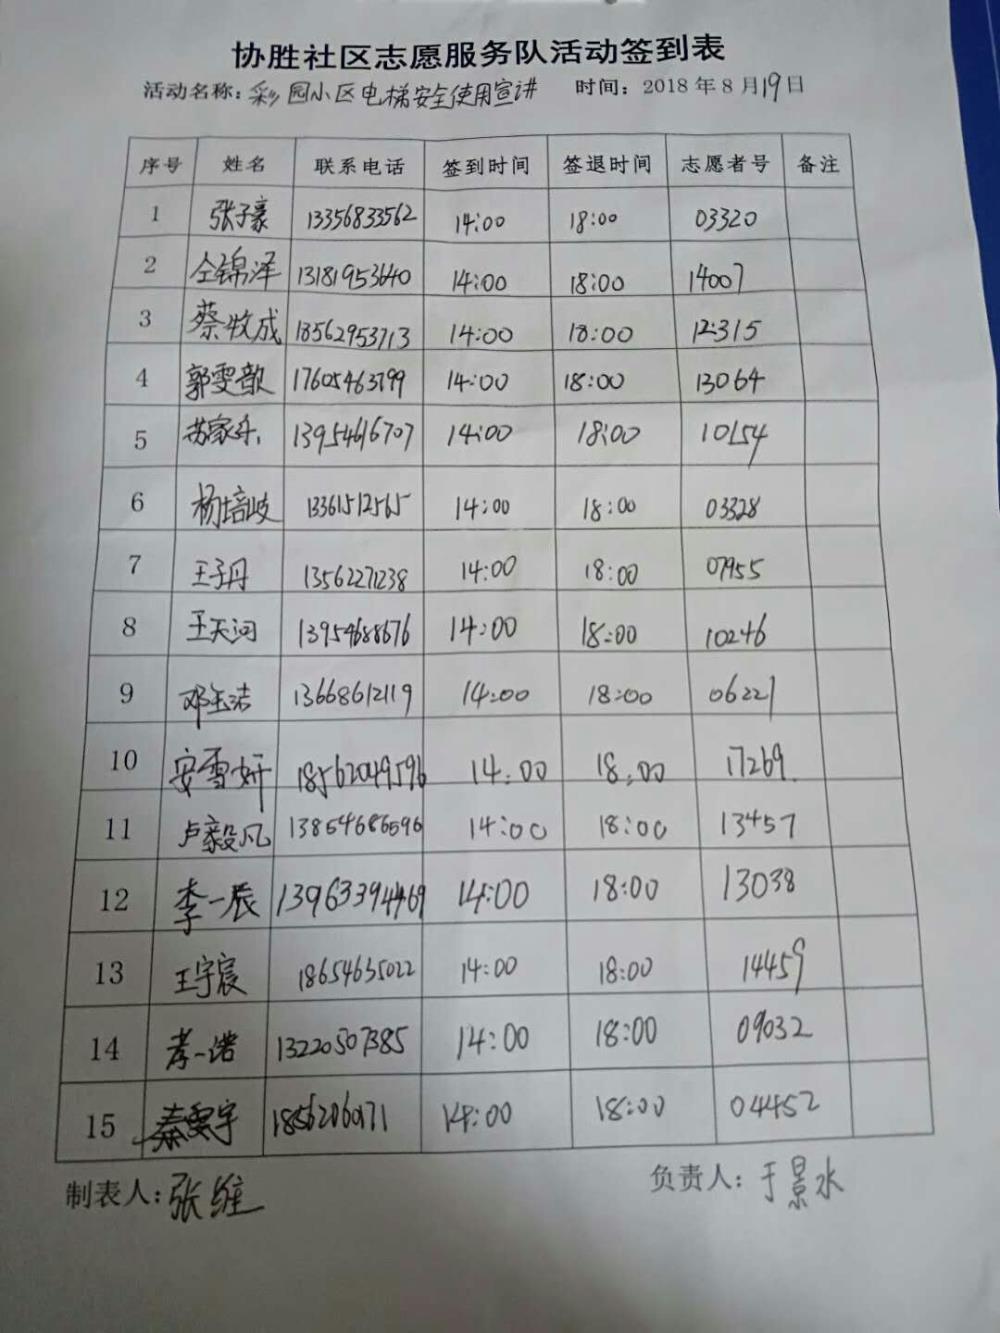 协胜社区志愿服务队活动签到表
活动名称：彩园小区电梯安全使用宣讲 时间：2018年8月19日
序号 姓名 联系电话 签到时间 签退时间 志愿者号 备注
1 张子豪 13356833562 14:00 18:00 03320
2 仝锦泽 13181953640 14:00 18:00 14007
3 蔡牧成 18562953713 14:00 18:00 12315
4 郭雯歆 17605463799 14:00 18:00 13064
5 13954616707 14:00 18:00 10154
6 杨培岐 13361512565 14:00 18:00 03328
7 王子丹 13562271238 14:00 18:00 07955
8 王天河 13954688676 14:00 18:00 10246
9 邓玉洁 13668612119 14:00 18:00 06221
10 安雪妍 18562049596 14:00 18:00 17269
11 卢毅凡 13854686596 14:00 18:00 13457
12 李一辰 13963394469 14:00 18:00 13038
13 王宇宸 18654635022 14:00 18:00 14459
14 孝一诺 13220507385 14:00 18:00 09032
15 秦雯宇 14:00 18:00 04452
制表人：张维 负责人：于景水